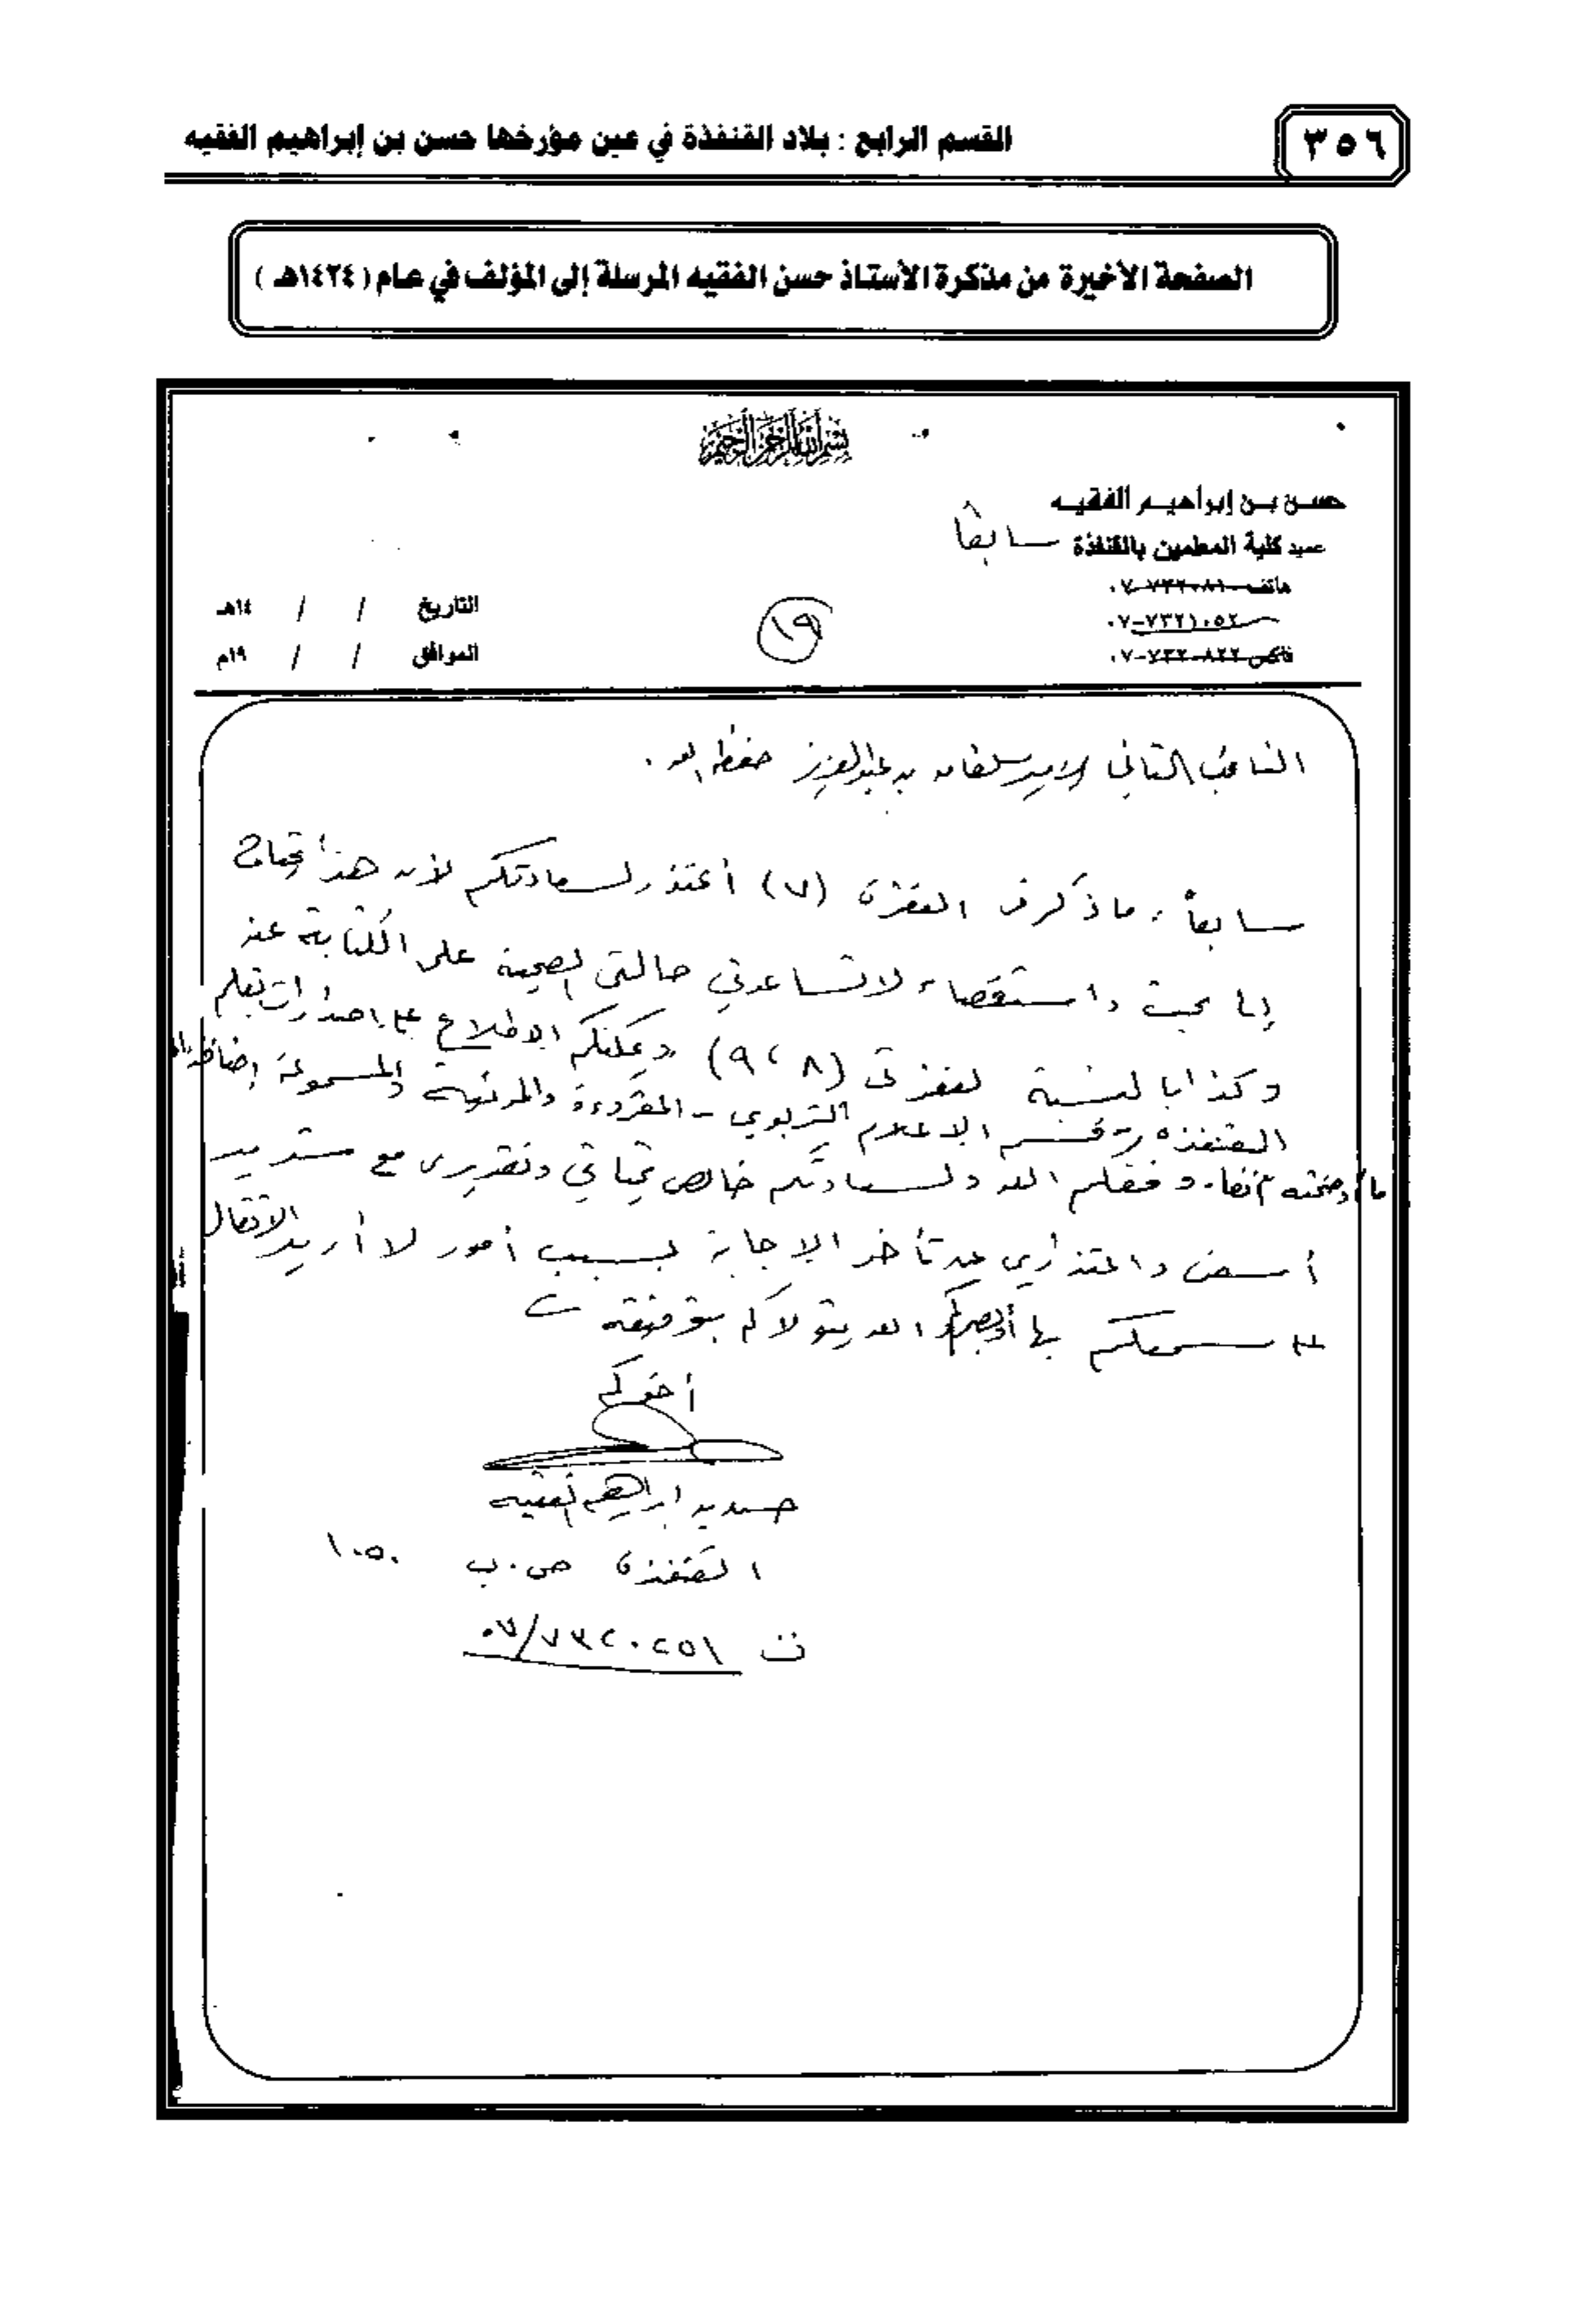 ٣٥٦
القسم الرابع : بلاد القنفذة في عين مؤرخها حسن بن إبراهيم الفقيه
الصفحة الأخيرة من مذكرة الأستاذ حسن الفقيه المرسلة إلى المؤلف في عام ( ١٤٢٤هـ )
بسم الله الرحمن الرحيم
حسن بن إبراهيم الفقيه
عميد كلية المعلمين بالقنفذة سابقاً
هاتف
٠٧-٧٣٢١٠٥٢
فاكس ٠٧-٧٣٢٠٨٢٢
التاريخ / / ١٤هـ
الموافق / / ١٩م
١٩
النائب الثاني الأمير سلطان بن عبدالعزيز حفظه الله .
سابعاً : ما ذكر في الفقرة (٧) أعتذر لسعادتكم لأن هذا يحتاج
إلى بحث واستقصاء لا تساعدني حالتي الصحية على الكتابة عنه
وكذا بالنسبة لفقرتي (٨ ، ٩) ويمكنكم الاطلاع على إصدارات تعليم
القنفذة وقسم الإعلام التربوي - المقروءة والمرئية والمسموعة إضافة إلى
ما أوضحته آنفا. وفقكم الله ولسعادتكم خالص تحياتي وتقديري مع مستديم
واعتذاري عن تأخر الإجابة بسبب أمور لا أريد الإثقال
سمعكم بها الله يتولاكم بتوفيقه
أخوكم
حسن بن إبراهيم الفقيه
القنفذة ص . ب ١٠٥٠
ت ٠٧/٧٣٢٠٢٥١